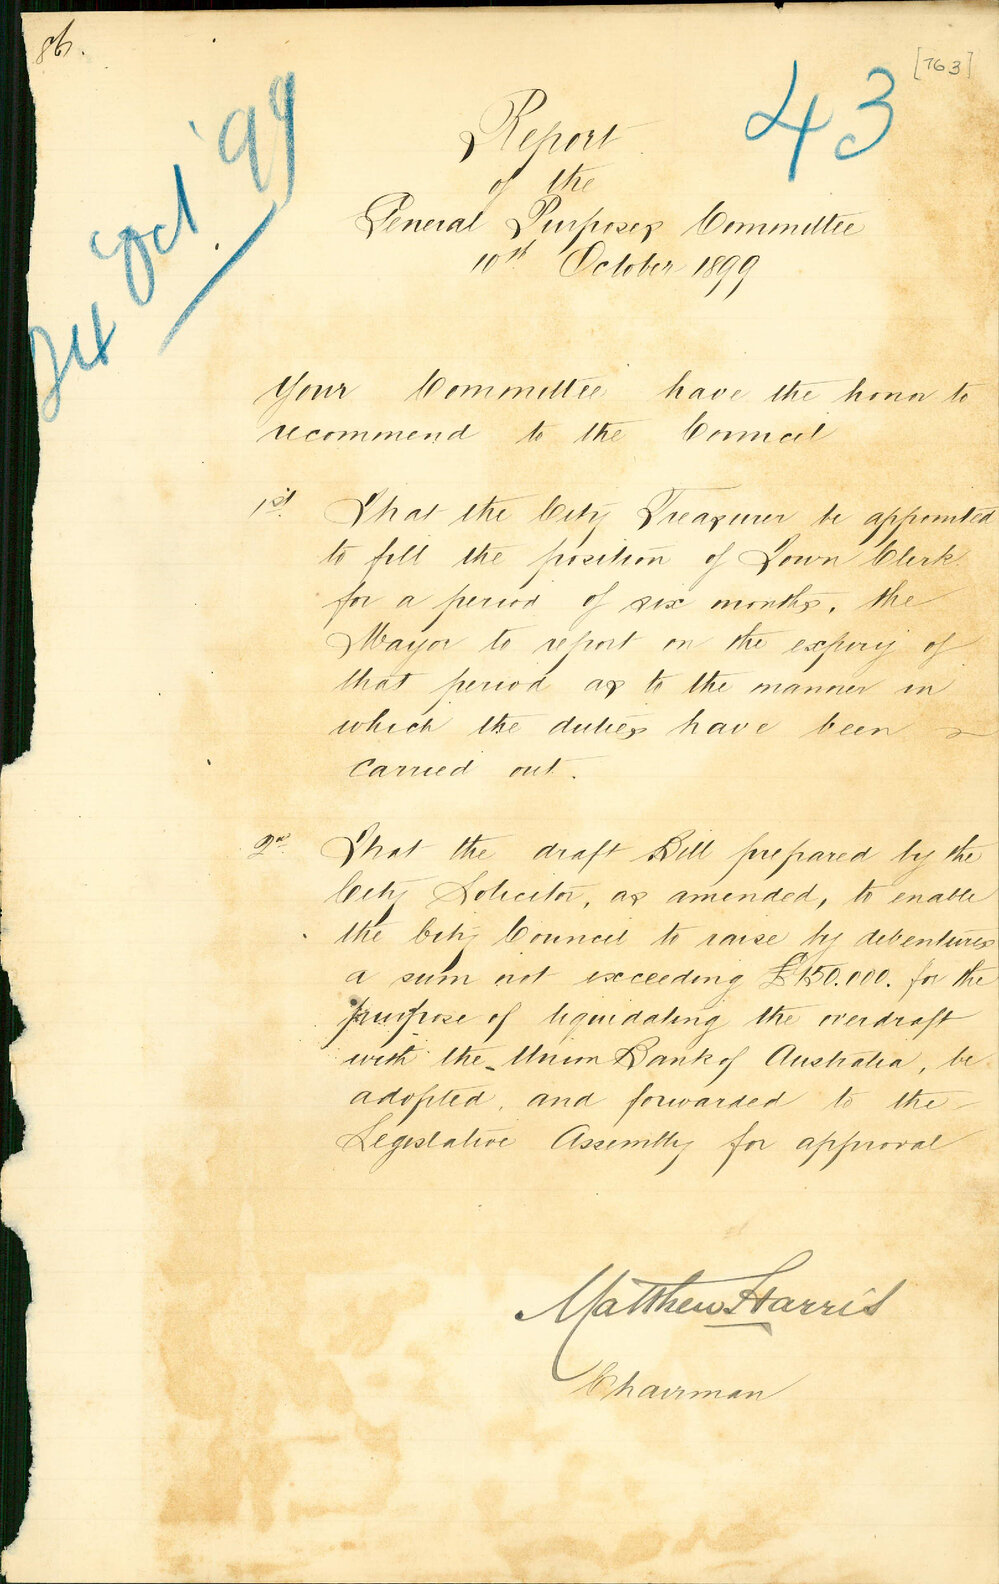 86.
[763]
43
24 Oct '99
Report
of the
General Purposes Committee
10th October 1899
Your Committee have the honor to
recommend to the Council
1st. That the City Treasurer be appointed
to fill the position of Town Clerk
for a period of six months, the
Mayor to report on the expiry of
that period as to the manner in
which the duties have been
carried out.
2nd. That the draft Bill prepared by the
City Solicitor, as amended, to enable
the City Council to raise by debentures
a sum not exceeding £150.000. for the
purpose of liquidating the overdraft
with the Union Bank of Australia, be
adopted, and forwarded to the
Legislative Assembly for approval
Matthew Harris
Chairman